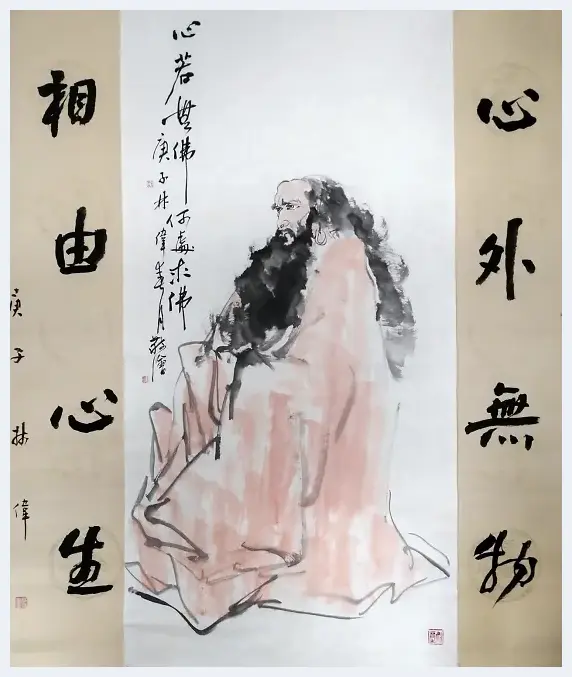 心外無物
心若無佛何處求佛
庚子林偉春月敬繪
相由心生
庚子林偉